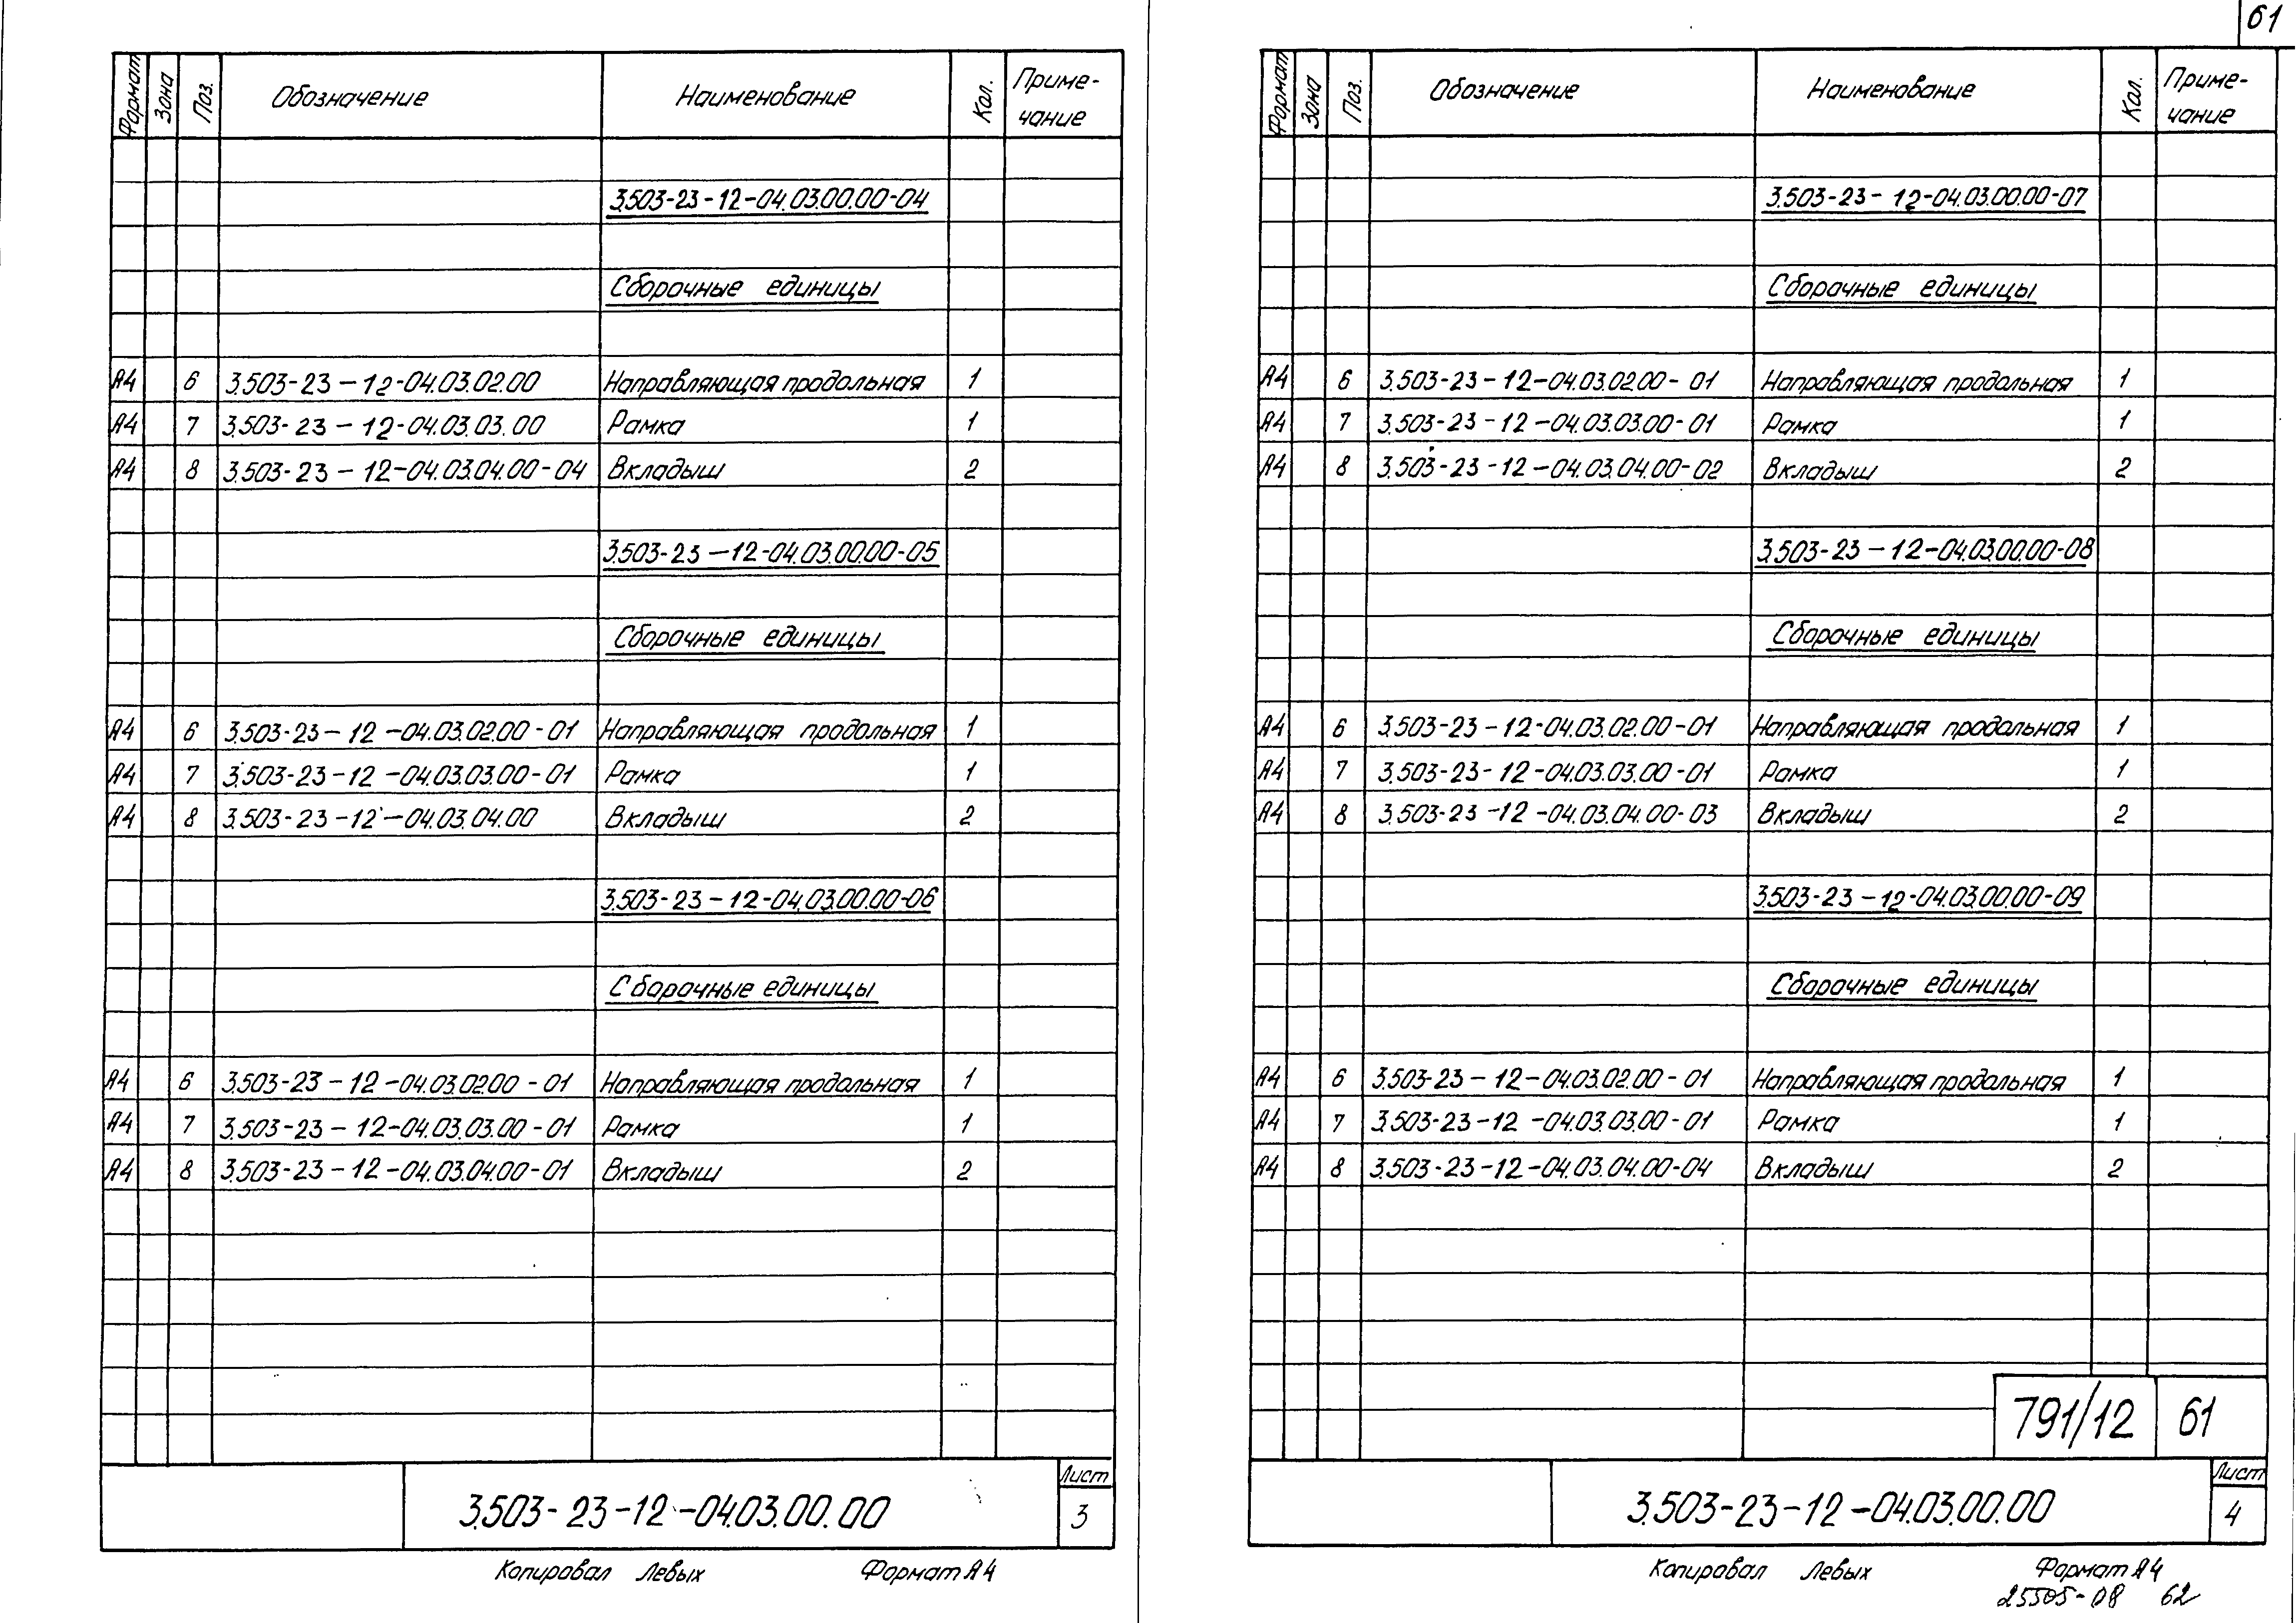 61
Формат Зона Поз. Обозначение Наименование Кол. Приме-
чание
3.503-23-12-04.03.00.00-04
Сборочные единицы
А4 6 3.503-23-12-04.03.02.00 Направляющая продольная 1
А4 7 3.503-23-12-04.03.03.00 Рамка 1
А4 8 3.503-23-12-04.03.04.00-04 Вкладыш 2
3.503-23-12-04.03.00.00-05
Сборочные единицы
А4 6 3.503-23-12-04.03.02.00-01 Направляющая продольная 1
А4 7 3.503-23-12-04.03.03.00-01 Рамка 1
А4 8 3.503-23-12-04.03.04.00 Вкладыш 2
3.503-23-12-04.03.00.00-06
Сборочные единицы
А4 6 3.503-23-12-04.03.02.00-01 Направляющая продольная 1
А4 7 3.503-23-12-04.03.03.00-01 Рамка 1
А4 8 3.503-23-12-04.03.04.00-01 Вкладыш 2
3.503-23-12-04.03.00.00
Лист
3
Копировал Левых Формат А4
Формат Зона Поз. Обозначение Наименование Кол. Приме-
чание
3.503-23-12-04.03.00.00-07
Сборочные единицы
А4 6 3.503-23-12-04.03.02.00-01 Направляющая продольная 1
А4 7 3.503-23-12-04.03.03.00-01 Рамка 1
А4 8 3.503-23-12-04.03.04.00-02 Вкладыш 2
3.503-23-12-04.03.00.00-08
Сборочные единицы
А4 6 3.503-23-12-04.03.02.00-01 Направляющая продольная 1
А4 7 3.503-23-12-04.03.03.00-01 Рамка 1
А4 8 3.503-23-12-04.03.04.00-03 Вкладыш 2
3.503-23-12-04.03.00.00-09
Сборочные единицы
А4 6 3.503-23-12-04.03.02.00-01 Направляющая продольная 1
А4 7 3.503-23-12-04.03.03.00-01 Рамка 1
А4 8 3.503-23-12-04.03.04.00-04 Вкладыш 2
791/12 61
3.503-23-12-04.03.00.00
Лист
4
Копировал Левых Формат А4
25505-08 62